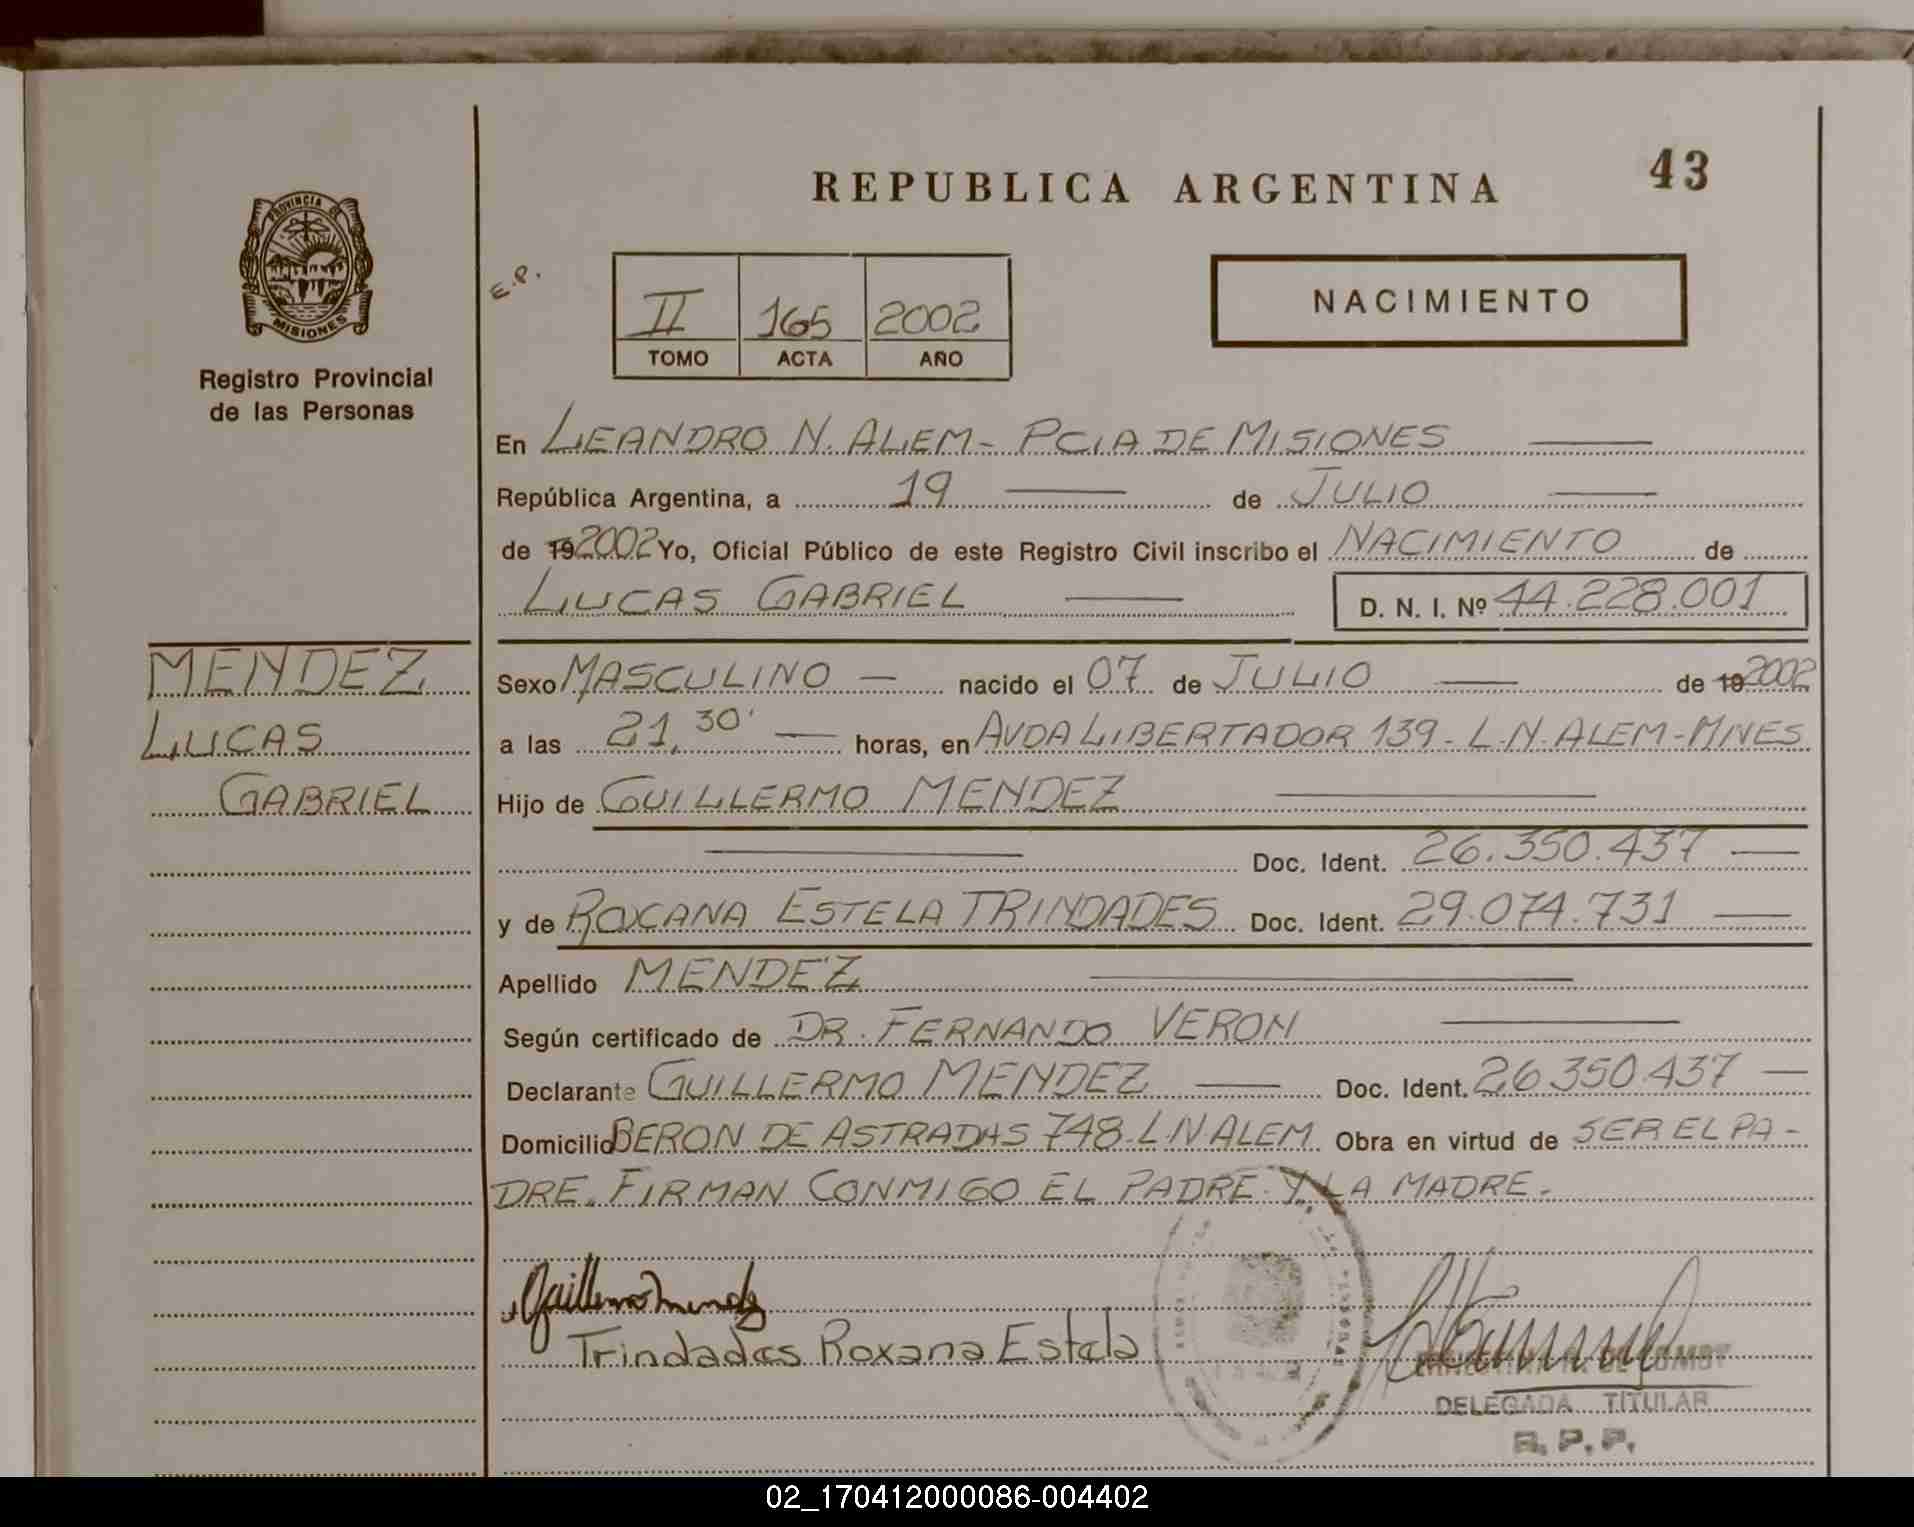 REPUBLICA ARGENTINA
43
PROVINCIA DE
MISIONES
Registro Provincial
de las Personas
E.P.
II 165 2002
TOMO ACTA AÑO
NACIMIENTO
En LEANDRO N. ALEM - PCIA DE MISIONES
República Argentina, a 19 de JULIO
de 19 2002 Yo, Oficial Público de este Registro Civil inscribo el NACIMIENTO de
LUCAS GABRIEL D. N. I. Nº 44.228.001
MENDEZ
LUCAS
GABRIEL
Sexo MASCULINO - nacido el 07 de JULIO de 19 2002
a las 21,30' horas, en AVDA LIBERTADOR 139 - L.N. ALEM - MNES
Hijo de GUILLERMO MENDEZ
Doc. Ident. 26.350.437
y de ROXANA ESTELA TRINDADES Doc. Ident. 29.074.731
Apellido MENDEZ
Según certificado de DR. FERNANDO VERON
Declarante GUILLERMO MENDEZ Doc. Ident. 26.350.437
Domicilio BERON DE ASTRADAS 748 - L N ALEM Obra en virtud de SER EL PA-
DRE. FIRMAN CONMIGO EL PADRE Y LA MADRE.
Guillermo mendez
Trindades Roxana Estela
DELEGADA TITULAR
R.P.P.
02_170412000086-004402